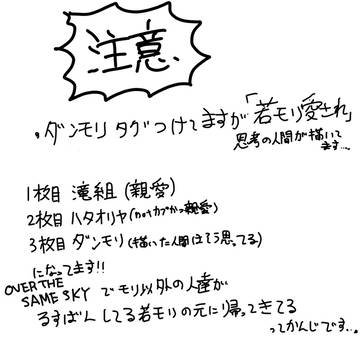 注意
・ダンモリタグつけてますが「若モリ愛され」
思考の人間が描いて
ます…
1枚目 滝組 (親愛)
2枚目 ハタオリヤ(notカプかつ親愛)
3枚目 ダンモリ (描いた人間はそう思ってる)
になってます!!
OVER THE
SAME SKY でモリ以外の人達が
るすばんしてる若モリの元に帰ってきてる
ってかんじです…。